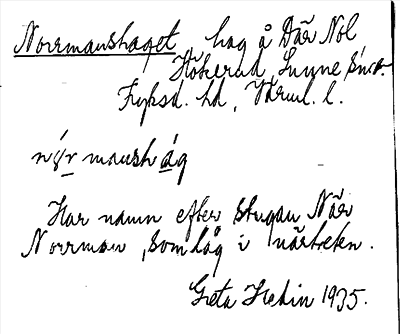 Norrmanshaget, hag å Där Nol
Hökerud, Lunne s:n.
Fryksd. hd, Värml. l.
nó̱r mansh á̱g
Har namn efter stugan När
Norrman, som låg i närheten.
Greta Hedin 1935.